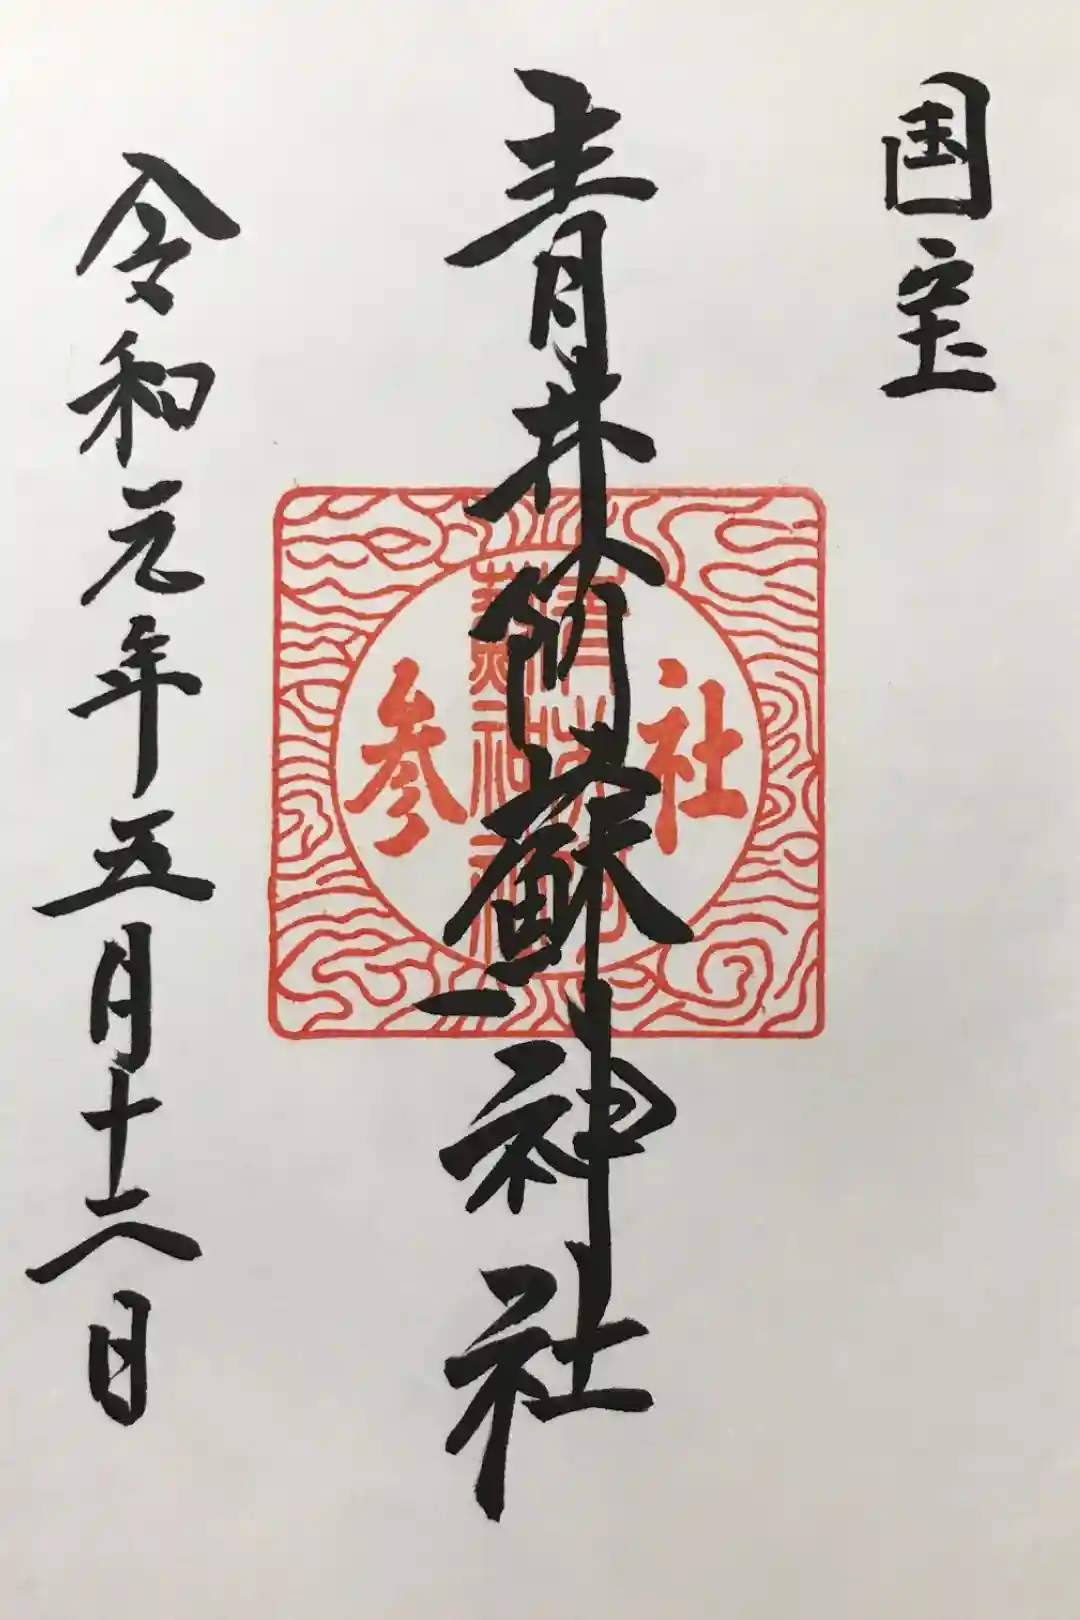 国宝
青井阿蘇神社
社参
青井阿
蘇神社
令和元年五月十六日